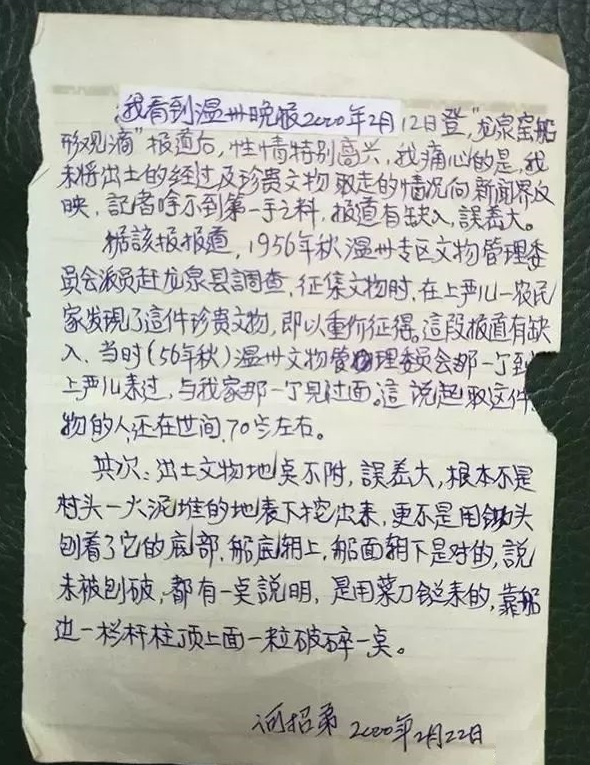 我看到温州晚报2000年2月12日登"龙泉窑船
形观滴"报道后，性情特别高兴，我痛心的是，我
未将出土的经过及珍贵文物取走的情况向新闻界反
映，記者呼不到第一手之料，报道有缺入，誤差大。
据該报报道，1956年秋温州专区文物管理委
员会派员赶龙泉县調查，征集文物时，在上严儿一农民
家发现了這件珍贵文物，即以重价征得。這段报道有缺
入，当时(56年秋)温州文物管理委员会那一个到
上严儿来过，与我家那一个見过面。這説起取这件
物的人，还在世间，70岁左右。
其次：出土文物地点不附，誤差大，根本不是
村头一火泥堆的地表下挖出来，更不是用锄头
刨着了它的底部，船底朝上，船面朝下是对的，説
未被刨破，都有一点説明，是用菜刀 来的，靠船
边一栏杆柱顶上面一粒破碎一点。
何招弟 2000年2月22日